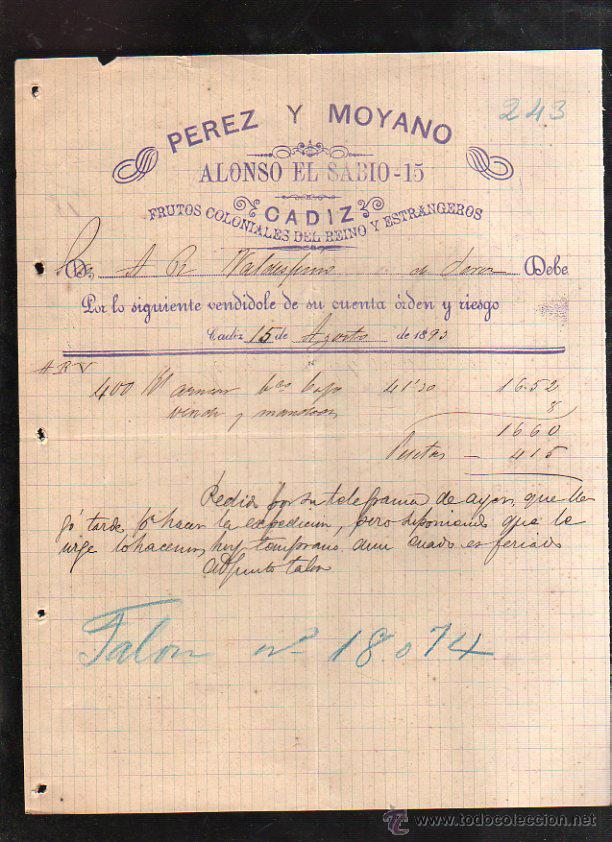 243
PEREZ Y MOYANO
ALONSO EL SABIO-15
CADIZ
FRUTOS COLONIALES DEL REINO Y ESTRANGEROS
A R Valdespino de Debe
Por lo siguiente vendidole de su cuenta órden y riesgo
Cadiz 15 de Agosto de 1893
A R V
400 41'30 1652
y 8
1660
Pesetas - 415
Pedido por su telegrama de ayer, que lle
gó tarde pª hacer la expedicion, pero suponiendo que le
urge lo hacemos hoy temprano aun cuando es feriado
Adjunto talon
Talon nº 18.074
www.todocoleccion.net